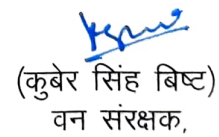 (कुबेर सिंह बिष्ट)
वन संरक्षक,